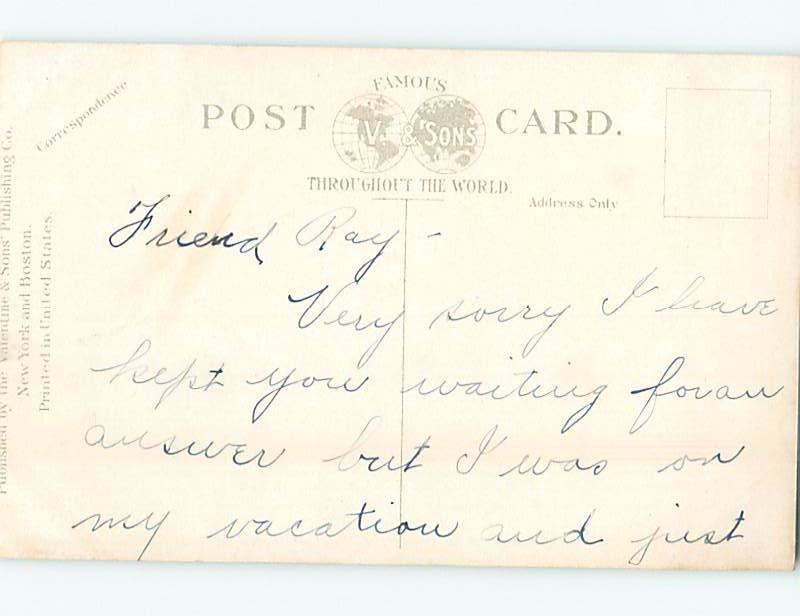 FAMOUS
POST CARD.
V. & SONS
THROUGHOUT THE WORLD.
Correspondence
Address Only
Published by the Valentine & Sons' Publishing Co.
New York and Boston.
Printed in United States.
Friend Ray -
Very sorry I have
kept you waiting for an
answer but I was on
my vacation and just